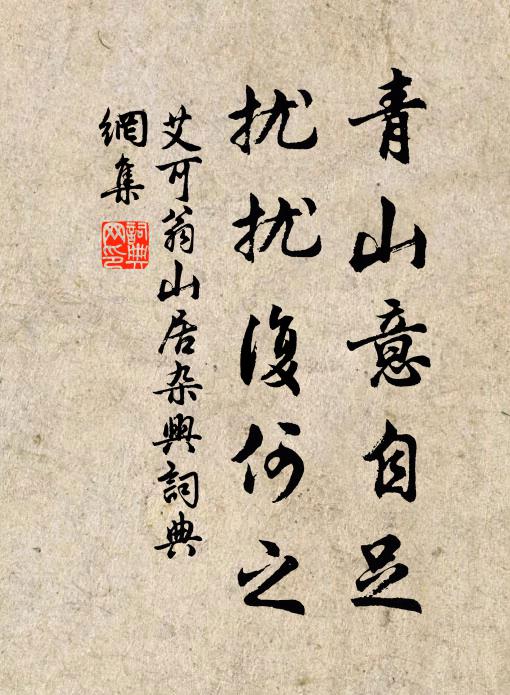 青山意自足
扰扰復何之
艾可翁山居杂興詞典
網集
詞典
网印